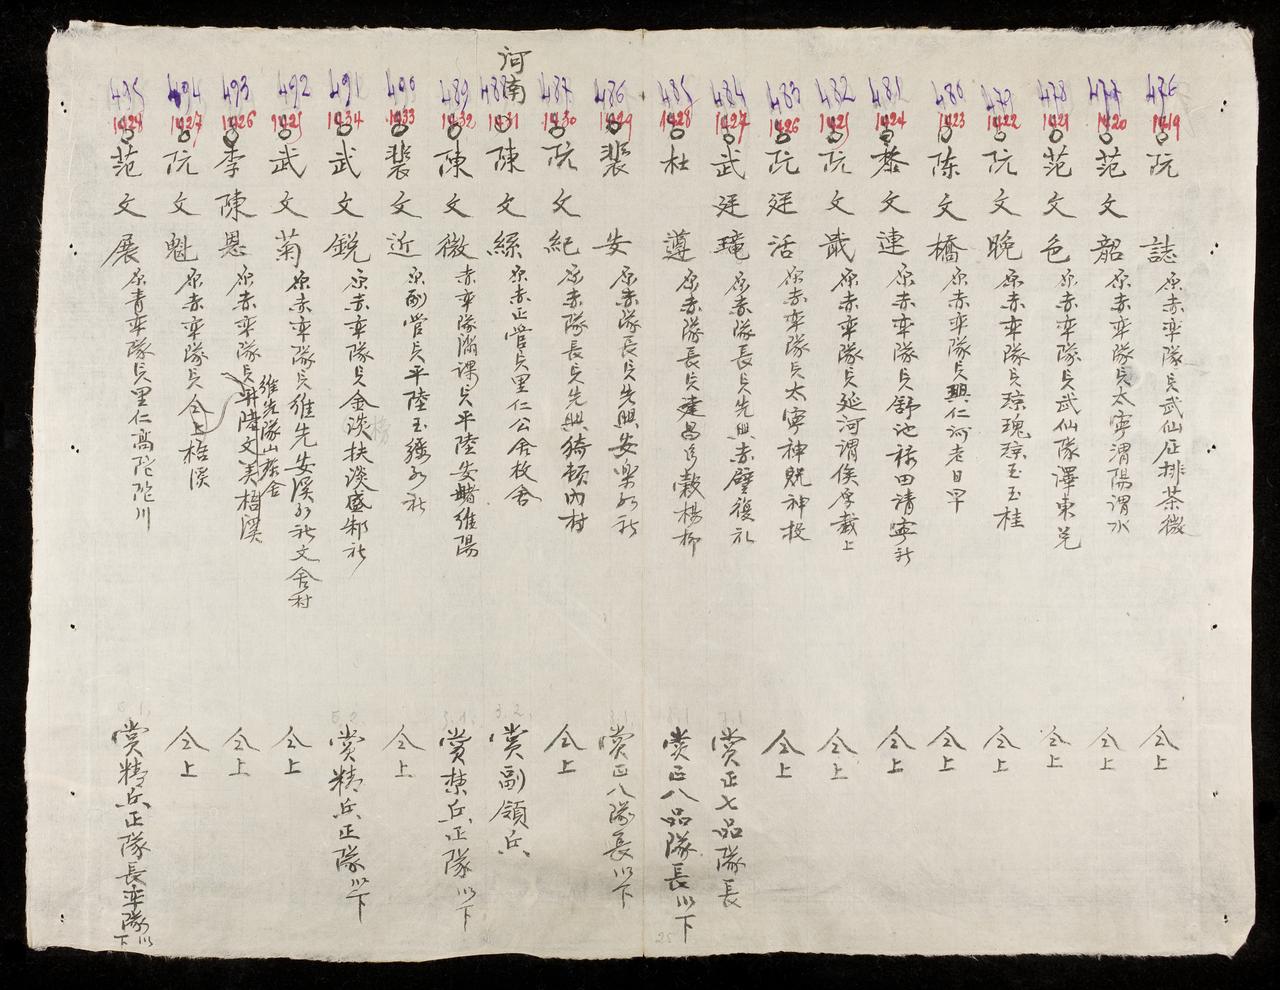 476 1419 阮誌 原赤率隊兵武仙庄排茶微 仝上
477 1420 范文韶 原赤率隊兵太寧渭陽渭水 仝上
478 1421 范文色 原赤率隊兵武仙隊澤東兌 仝上
479 1422 阮文晚 原赤率隊兵瓊瑰瓊玉玉桂 仝上
480 1423 陈文橋 原赤率隊兵興仁河老日早 仝上
481 1424 黎文連 原赤率隊兵舒池 田清寧社 仝上
482 1425 阮文 原赤率隊兵延河谓侯 上 仝上
483 1426 阮廷活 原赤率隊兵太寧神 神投 仝上
484 1427 武廷 原赤隊長兵先興赤壁復礼 賞正七品隊長
485 1428 杜遵 原赤隊長兵建昌 楊柳 賞正八品隊長以下
486 1429 裴安 原赤隊長兵先興安楽 社 賞正八隊長以下
487 1430 阮文紀 原赤隊長兵先興 内村 仝上
河南
488 1431 陳文縲 原赤正營兵里仁公舍枚舍 賞副領兵
489 1432 陳文微 赤率隊滿課兵平陸安 維陽 賞禁兵正隊以下
490 1433 裴文近 原副營兵平陸玉 社 仝上
491 1434 武文鋭 原赤率隊兵金 扶 盛 社 賞精兵正隊以下
492 1425 武文菊 原赤率隊兵維先安溪 社文舍村 仝上
維先隊山 舍
493 1426 李陳恩 原赤率隊兵 陸文美梧溪 仝上
494 1427 阮文魁 原赤率隊兵仝上梧溪 仝上
495 1428 范文展 原青率隊兵里仁高陀陀川 賞精兵正隊長率隊以下